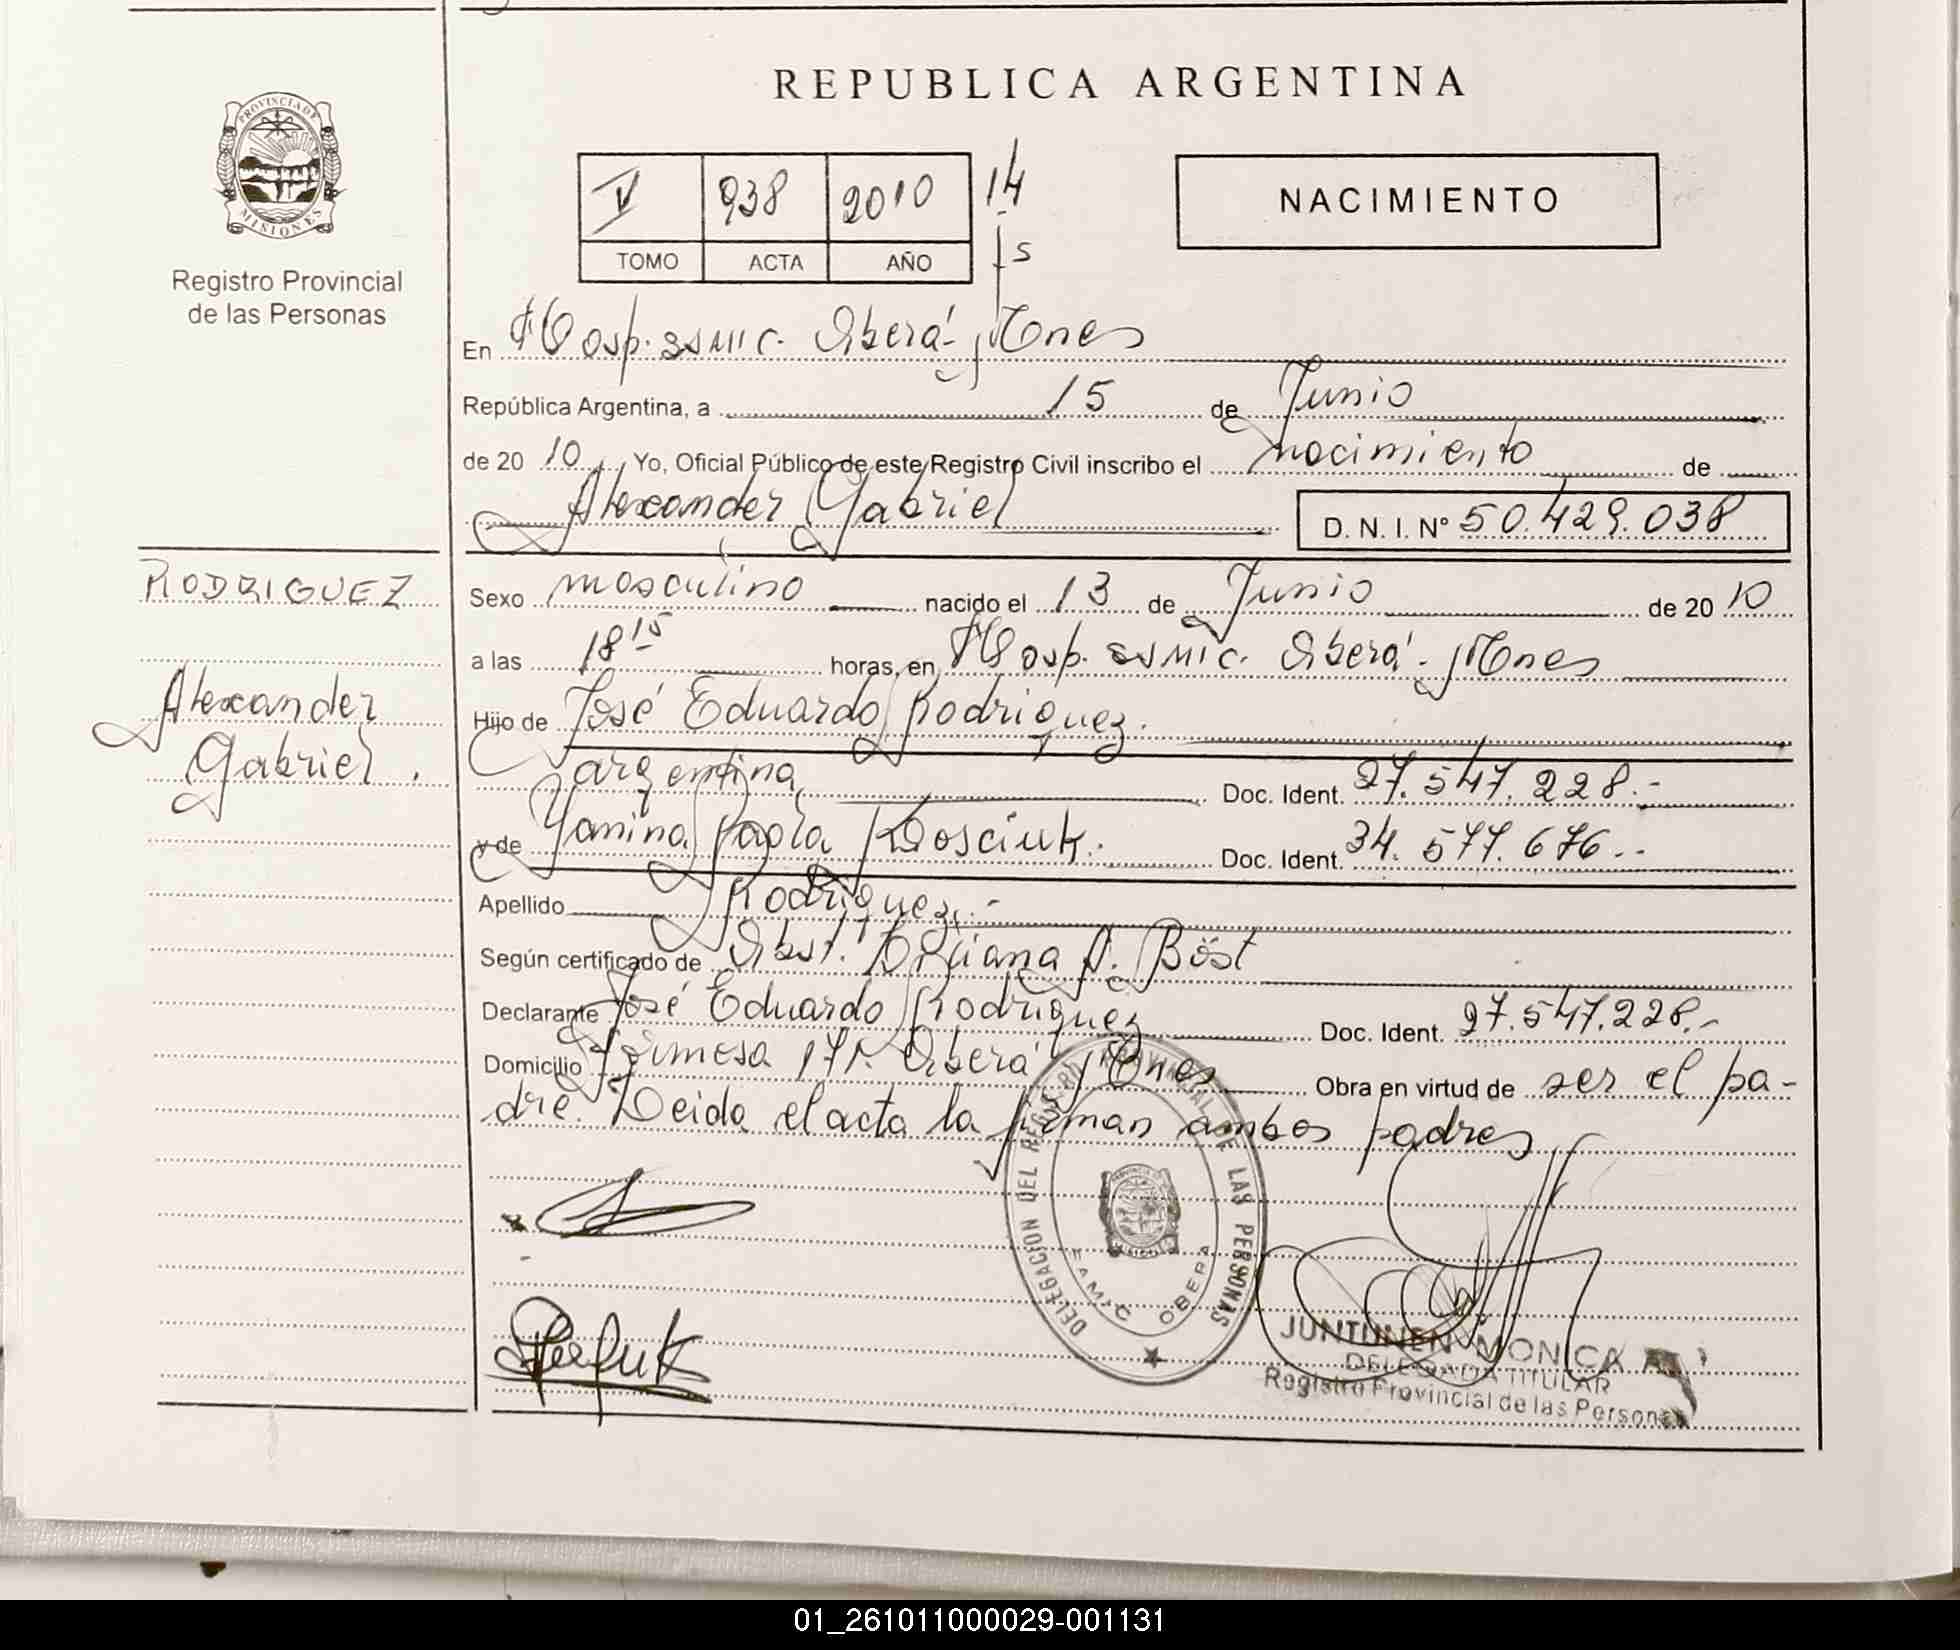 REPUBLICA ARGENTINA
PROVINCIA DE
MISIONES
Registro Provincial
de las Personas
V 938 2010 14
TOMO ACTA AÑO 15
NACIMIENTO
En Hosp. SSMIC. Oberá- Mnes
República Argentina, a 15 de Junio
de 20 10 Yo, Oficial Público de este Registro Civil inscribo el nacimiento de
Alexander Gabriel D. N. I. Nº 50.429.038
RODRIGUEZ
Alexander
Gabriel.
Sexo masculino nacido el 13 de Junio de 20 10
a las 18 15 horas, en Hosp. SSMIC. Oberá- Mnes
Hijo de José Eduardo Rodriguez.
argentina Doc. Ident. 27.547.228.-
y de Yanina Paola Kosciuk. Doc. Ident. 34.577.676.-
Apellido Rodriguez.-
Según certificado de Obst. A. Böst
Declarante José Eduardo Rodriguez Doc. Ident. 27.547.228.-
Domicilio Formosa Oberá Mnes Obra en virtud de ser el pa-
dre. Leida el acta la firman ambos padres
DELEGACION DEL REGISTRO PROVINCIAL DE LAS PERSONAS
SAMIC OBERA
MISIONES
JUNTUNEN MONICA
DELEGADA TITULAR
Registro Provincial de las Personas
01_261011000029-001131